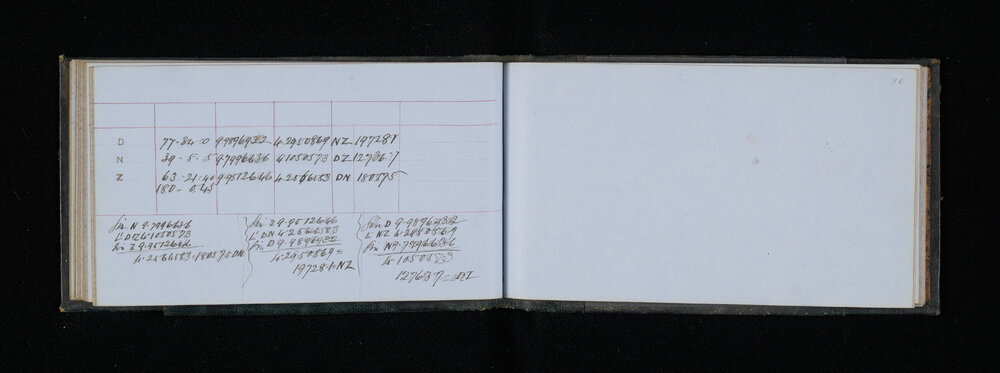 D 77-34-0 9.9896932 4.2950869 NZ 19728.1
N 39-5-5 9.7996636 4.1050573 DZ 12736.7
Z 63-21-40 9.9512646 4.2566583 DN 18057.5
180-0.45
Sin N 9.7996636
L' DZ 4.1050573
Sin Z 9.9512646
4.2566583 = 18057.5 DN
Sin Z 9.9512646
L' DN 4.2566583
Sin D 9.9896932
4.2950869 =
19728.1 = NZ
Sin D 9.9896932
L' NZ 4.2950869
Sin N 9.7996636
4.1050573
12763.7 = DZ